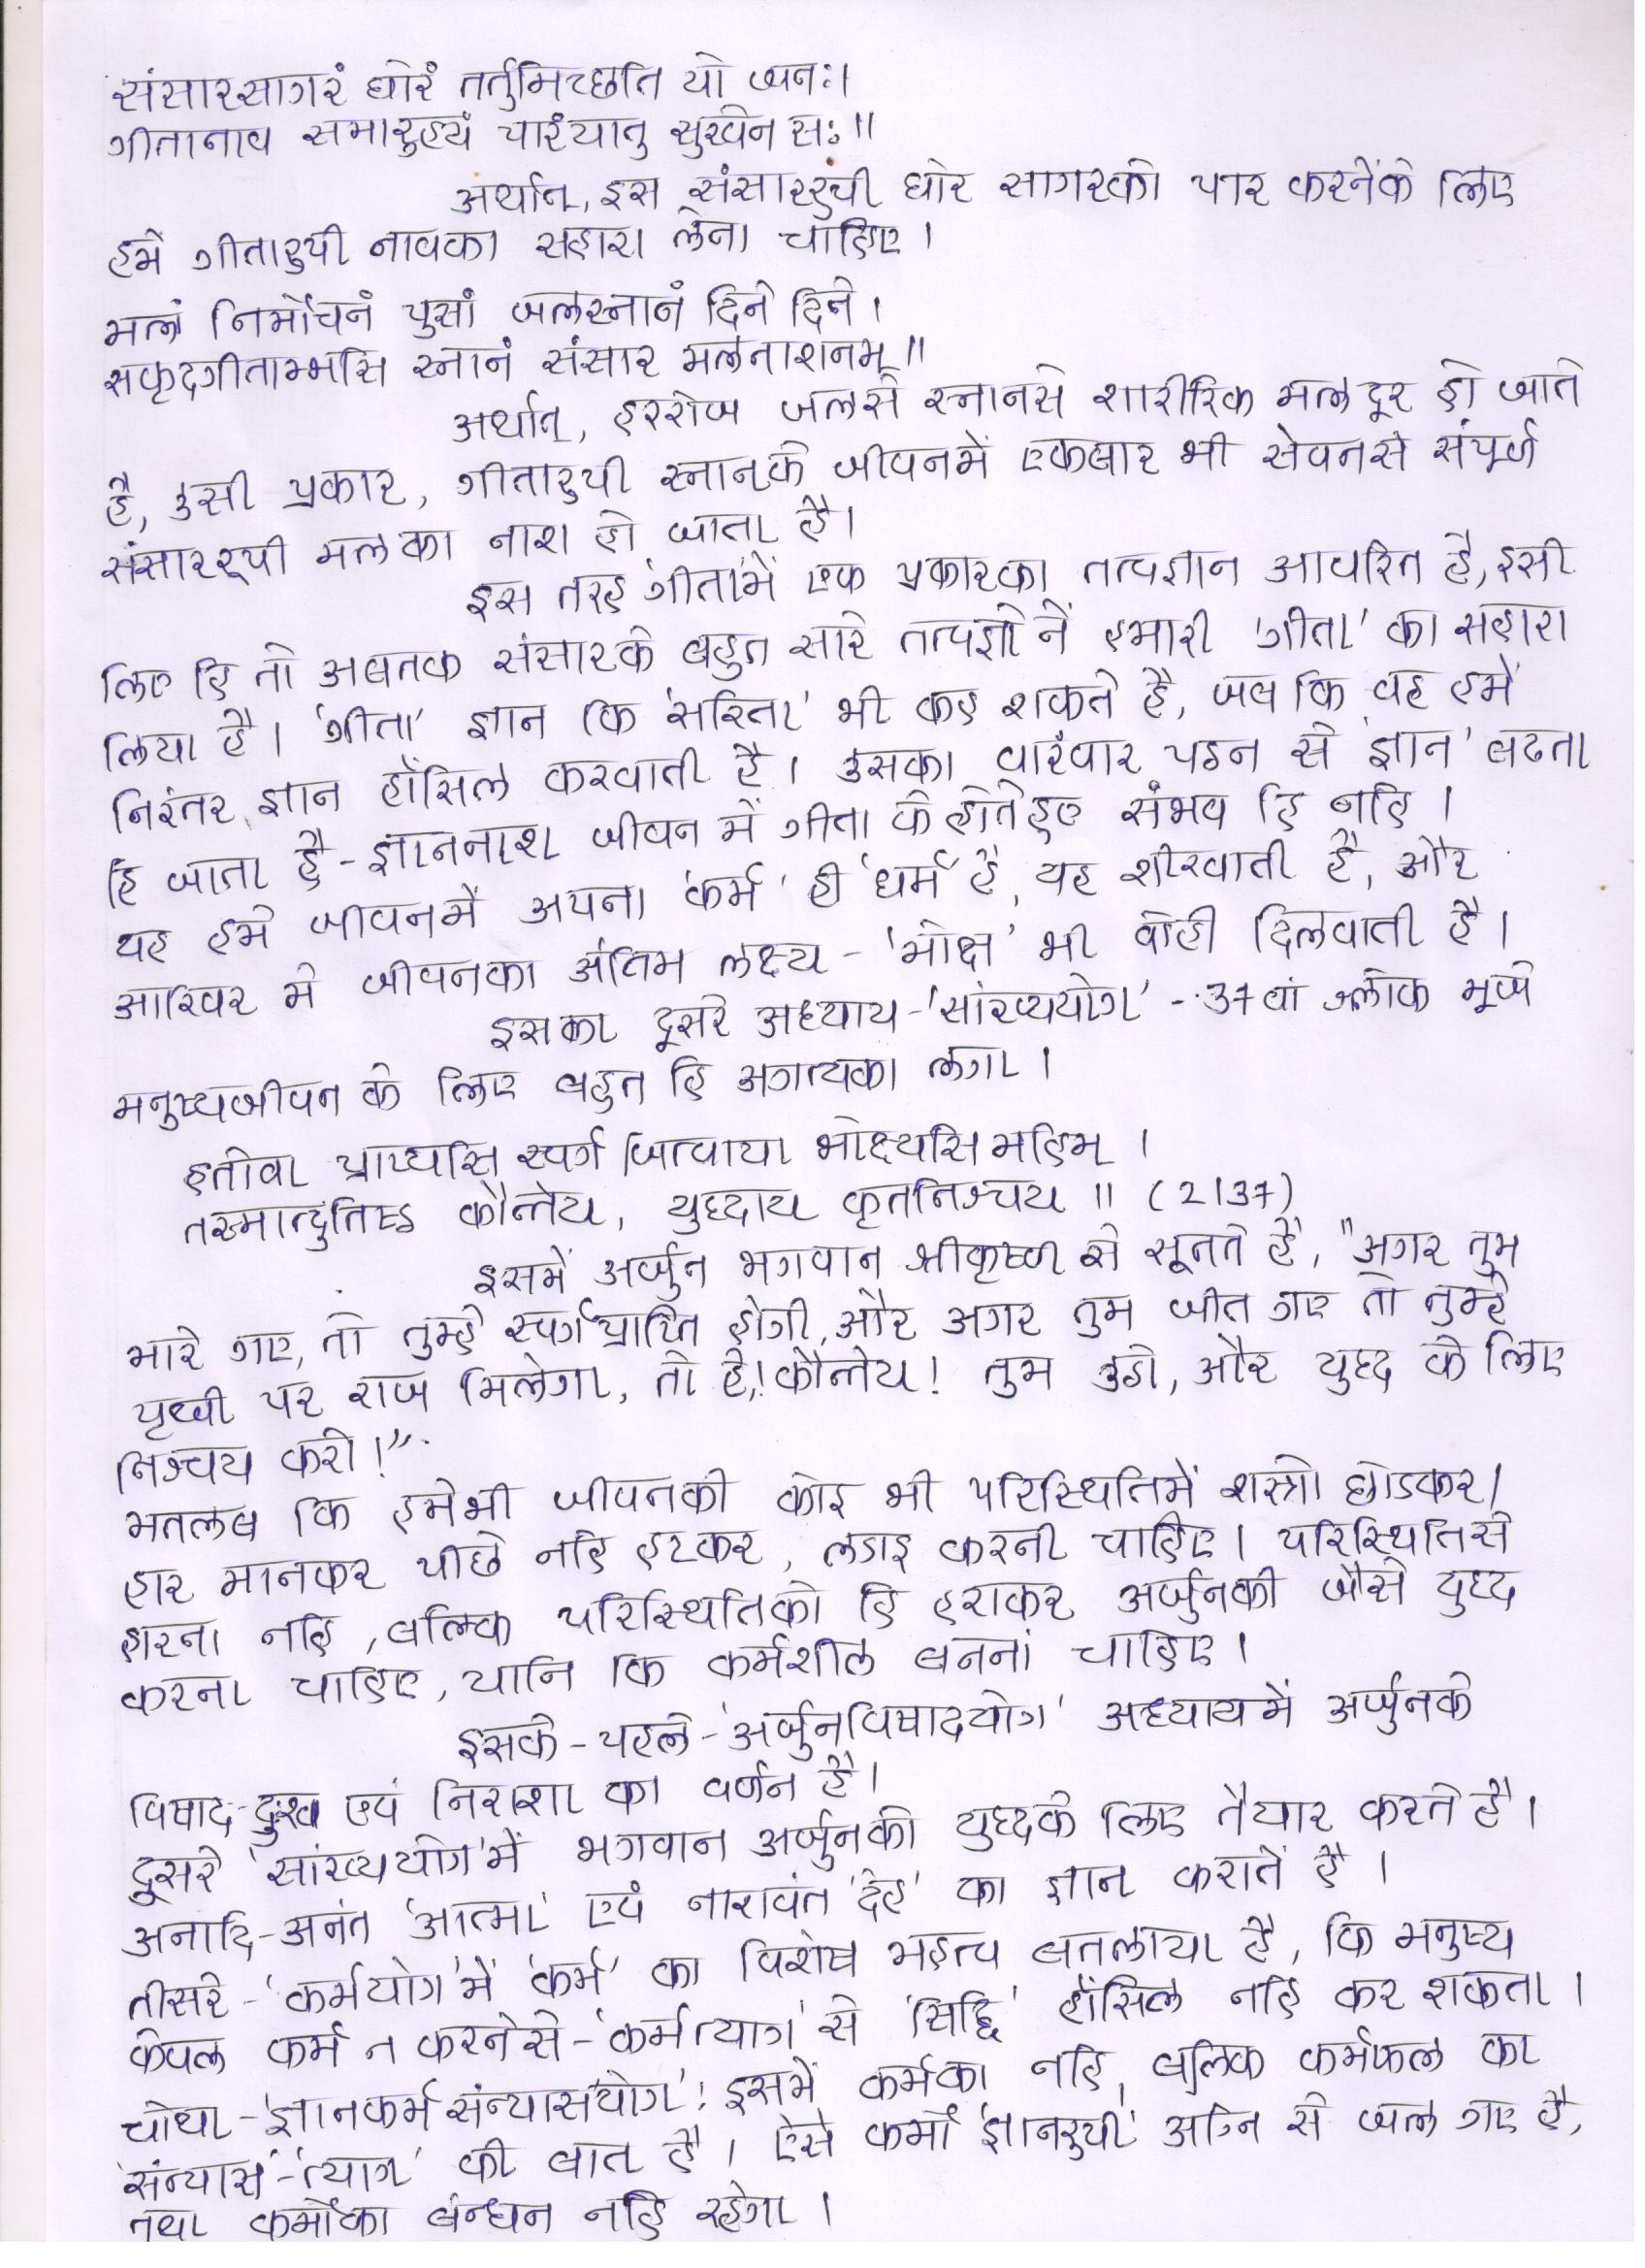 संसारसागरं घोरं तर्तुमिच्छति यो जनः।
गीतानाव समारुह्यं पारंयातु सुखेन सः॥
अर्थात्, इस संसाररुपी घोर सागरको पार करनेंके लिए
हमें गीतारुपी नावका सहारा लेना चाहिए।
मलं निर्मोचनं पुसां जलस्नानं दिने दिने।
सकृदगीताम्भसि स्नानं संसार मलनाशनम्॥
अर्थात्, हररोज जलसे स्नानसे शारीरिक मल दूर हो जाते
है, उसी प्रकार, गीतारुपी स्नानके जीवनमें एकबार भी सेवनसे संपूर्ण
संसाररूपी मलका नाश हो जाता है।
इस तरह 'गीता'में एक प्रकारका तत्वज्ञान आवरित है, इसी
लिए हि तो अबतक संसारके बहुत सारे तत्वज्ञो नें हमारी 'गीता' का सहारा
लिया है। 'गीता' ज्ञान कि 'सरिता' भी कह शकते है, जब कि वह हमें
निरंतर ज्ञान हाँसिल करवाती है। उसका वारंवार पठन से 'ज्ञान' बढता
हि जाता है - ज्ञाननाश जीवन में गीता के होते हुए संभव हि नहि।
यह हमे जीवनमें अपना 'कर्म' ही 'धर्म' है, यह शीखाती है, और
आखिर मे जीवनका अंतिम लक्ष्य - 'मोक्ष' भी वोही दिलवाती है।
इसका दूसरे अध्याय - 'सांख्ययोग' - 37 वां श्लोक मूजे
मनुष्यजीवन के लिए बहुत हि अगत्यका लगा।
हतोवा प्राप्यसि स्वर्ग जित्वाया भोक्ष्यसि महिम्।
तस्मात्दुतिष्ठ कौन्तेय, युध्दाय कृतनिश्चय॥ (2।37)
इसमें अर्जुन भगवान श्रीकृष्ण से सूनते हैं, "अगर तुम
मारे गए, तो तुम्हे स्वर्गप्राप्ति होगी, और अगर तुम जीत गए तो तुम्हे
पृथ्वी पर राज मिलेगा, तो हे,! कौन्तेय! तुम उठो, और युध्द के लिए
निश्चय करो!"
मतलब कि हमेभी जीवनकी कोइ भी परिस्थितिमें शस्त्रो छोडकर।
हार मानकर पीछे नहि हटकर, लडाइ करनी चाहिए। परिस्थितिसे
हारना नहि, बल्कि परिस्थितिको हि हराकर अर्जुनकी जैसे युध्द
करना चाहिए, यानि कि कर्मशील बननां चाहिए।
इसके - पहले - 'अर्जुनविषादयोग' अध्याय में अर्जुनके
विषाद - दुःख एवं निराशा का वर्णन है।
दूसरे 'सांख्ययोग'में भगवान अर्जुनको युध्दके लिए तैयार करते है।
अनादि - अनंत 'आत्मा' एवं नाशवंत 'देह' का ज्ञान करातें है।
तीसरे - 'कर्मयोग'में 'कर्म' का विशेष महत्व बतलाया है, कि मनुष्य
केवल कर्म न करनेसे - 'कर्मत्याग' से 'सिद्दि' हाँसिल नहि कर शकता।
चोथा - 'ज्ञानकर्म संन्यासयोग': इसमें कर्मका नहि, बल्कि कर्मफल का
'संन्यास' - 'त्याग' की बात है। ऐसे कर्मों 'ज्ञानरुपी' अग्नि से जल गए है,
तथा कर्मोंका बन्धन नहि रहेगा।